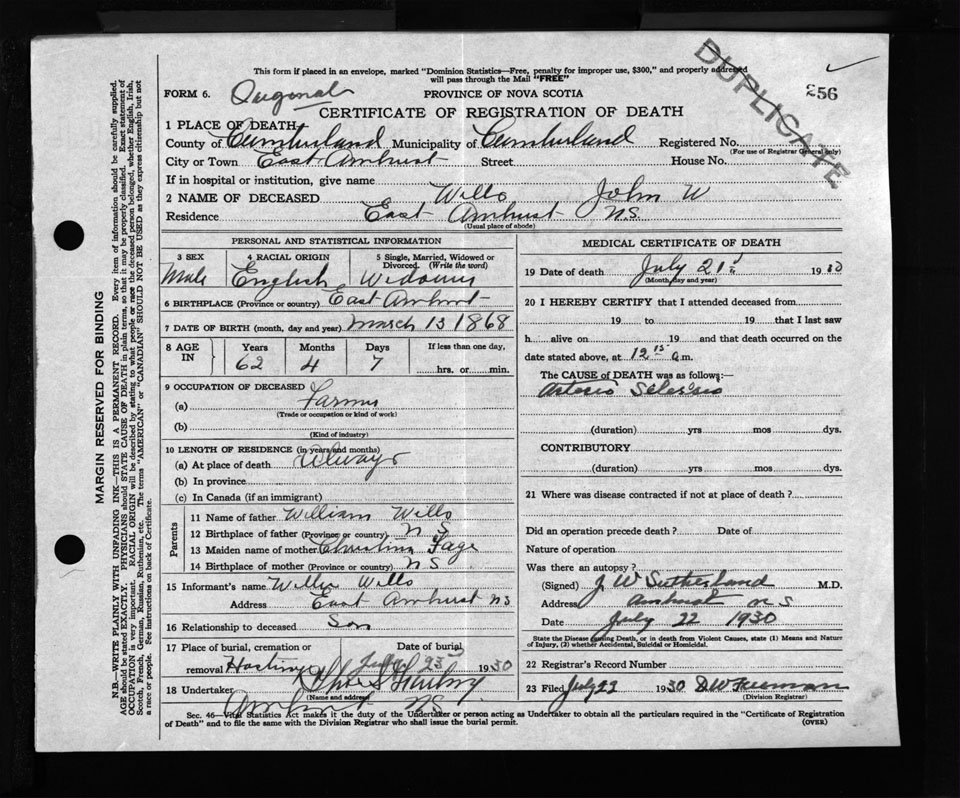 DUPLICATE
256
This form if placed in an envelope, marked "Dominion Statistics—Free, penalty for improper use, $300," and properly addressed
will pass through the Mail "FREE"
FORM 6. Orginal PROVINCE OF NOVA SCOTIA
CERTIFICATE OF REGISTRATION OF DEATH
1 PLACE OF DEATH
County of Cumberland Municipality of Cumberland Registered No.
(For use of Registrar General only)
City or Town East Amherst Street House No.
If in hospital or institution, give name
2 NAME OF DECEASED Wells John W
Residence East Amherst N.S.
(Usual place of abode)
PERSONAL AND STATISTICAL INFORMATION
3 SEX 4 RACIAL ORIGIN 5 Single, Married, Widowed or
Divorced. (Write the word)
Male English Widower
6 BIRTHPLACE (Province or country) East Amherst
7 DATE OF BIRTH (month, day and year) March 13 1868
8 AGE IN Years Months Days If less than one day,
62 4 7 hrs. or min.
9 OCCUPATION OF DECEASED
(a) Farmer
(Trade or occupation or kind of work)
(b)
(Kind of industry)
10 LENGTH OF RESIDENCE (in years and months)
(a) At place of death Always
(b) In province
(c) In Canada (if an immigrant)
Parents
11 Name of father William Wells
12 Birthplace of father (Province or country) N S
13 Maiden name of mother Christina Fage
14 Birthplace of mother (Province or country) N S
15 Informant's name Wells
Address East Amherst NS
16 Relationship to deceased Son
17 Place of burial, cremation or Date of burial
removal July 23 1930
18 Undertaker
(Name and address)
Amherst NS
MEDICAL CERTIFICATE OF DEATH
19 Date of death July 21st 1930
(Month, day and year)
20 I HEREBY CERTIFY that I attended deceased from
19 to 19 that I last saw
h alive on 19 and that death occurred on the
date stated above, at 12 15 a.m.
The CAUSE OF DEATH was as follows:—
(duration) yrs mos dys.
CONTRIBUTORY
(duration) yrs mos dys.
21 Where was disease contracted if not at place of death?
Did an operation precede death? Date of
Nature of operation
Was there an autopsy?
(Signed) J W Sutherland M.D.
Address Amherst N S
Date July 22 1930
State the Disease Causing Death, or in death from Violent Causes, state (1) Means and Nature
of Injury, (2) whether Accidental, Suicidal or Homicidal.
22 Registrar's Record Number
23 Filed July 23 1930 D W Freeman
(Division Registrar)
Sec. 46—Vital Statistics Act makes it the duty of the Undertaker or person acting as Undertaker to obtain all the particulars required in the "Certificate of Registration
of Death" and to file the same with the Division Registrar who shall issue the burial permit. (OVER)
MARGIN RESERVED FOR BINDING
N.B.—WRITE PLAINLY WITH UNFADING INK—THIS IS A PERMANENT RECORD. Every item of information should be carefully supplied.
AGE should be stated EXACTLY. PHYSICIANS should STATE CAUSE OF DEATH in plain terms, so that it may be properly classified. Exact statement of
OCCUPATION is very important. RACIAL ORIGIN will be described by stating to what people or race the deceased person belonged, whether English, Irish,
Scotch, French, German, Russian, Ruthenian, etc. The terms "AMERICAN" or "CANADIAN" SHOULD NOT BE USED as they express citizenship but not
a race or people. See instructions on back of Certificate.